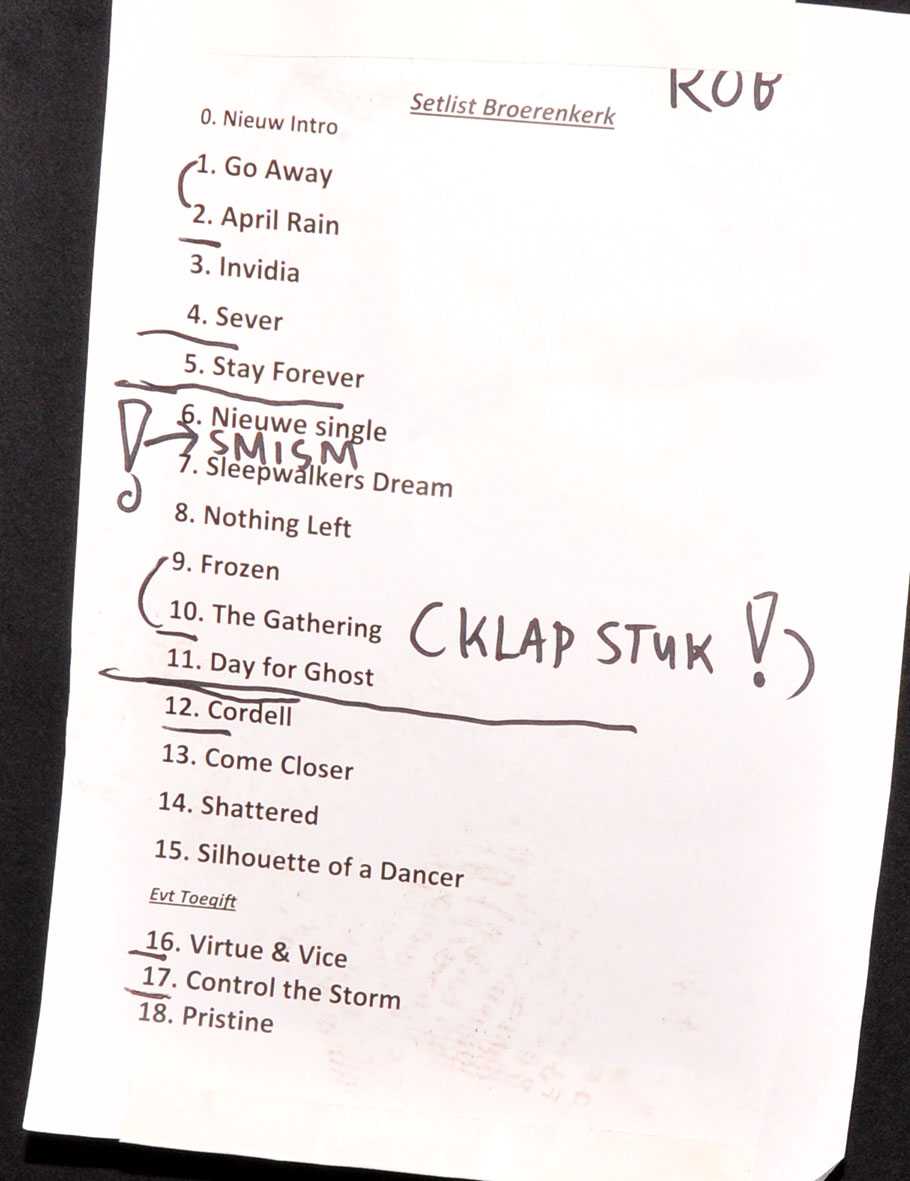 ROB
Setlist Broerenkerk
0. Nieuw Intro
1. Go Away
2. April Rain
3. Invidia
4. Sever
5. Stay Forever
6. Nieuwe single
! → SMISM
7. Sleepwalkers Dream
8. Nothing Left
9. Frozen
10. The Gathering (KLAPSTUK!)
11. Day for Ghost
12. Cordell
13. Come Closer
14. Shattered
15. Silhouette of a Dancer
Evt Toegift
16. Virtue & Vice
17. Control the Storm
18. Pristine